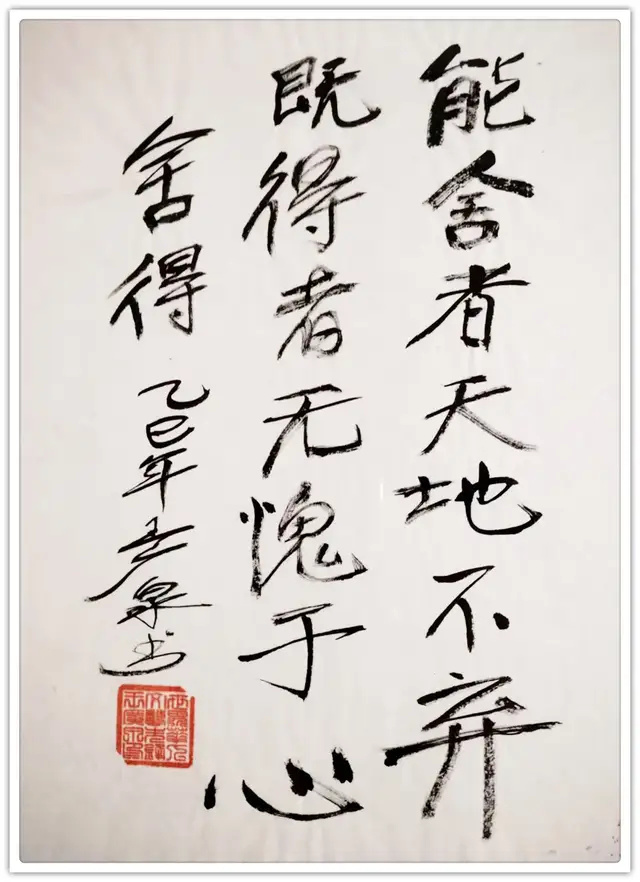 能舍者天地不弃
既得者无愧于心
舍得 乙巳年 泉书